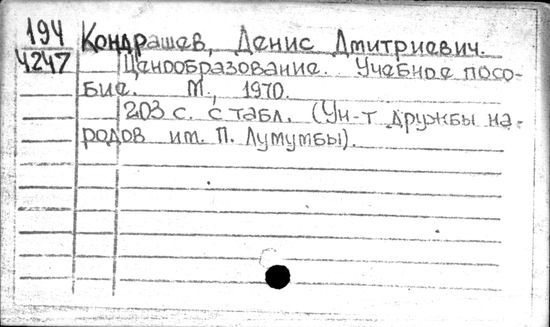 194 Кондрашев, Денис Дмитриевич.
4247 Ценообразование. Учебное посо-
бие. М., 1970.
203 с. с табл. (Ун-т дружбы на-
родов им. П. Лумумбы).